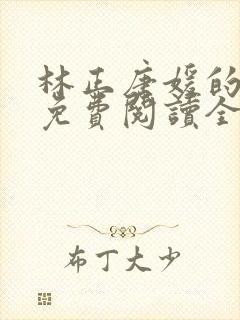 林正唐媛的
免費閱讀全
布丁大少